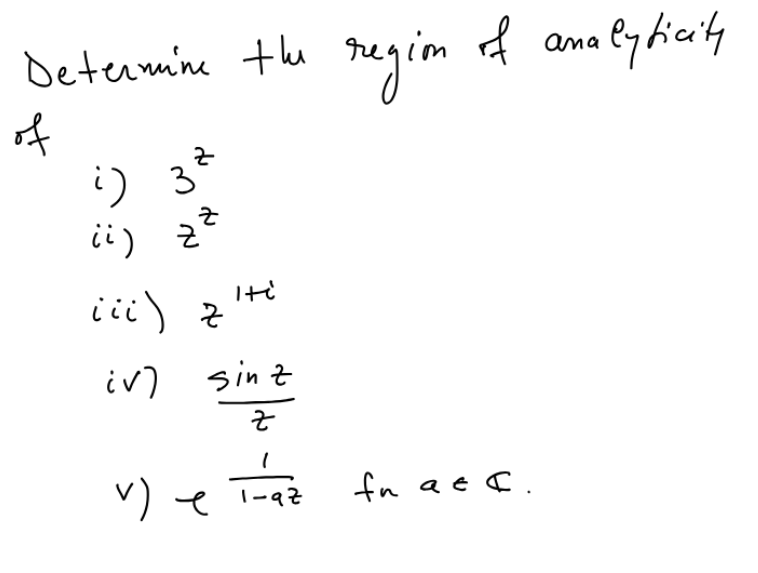 Determine the region of analyticity
of
i) 3^z
ii) z^z
iii) z^{1+i}
iv) \frac{sin z}{z}
v) e^{\frac{1}{1-az}} for a ∈ ℂ.